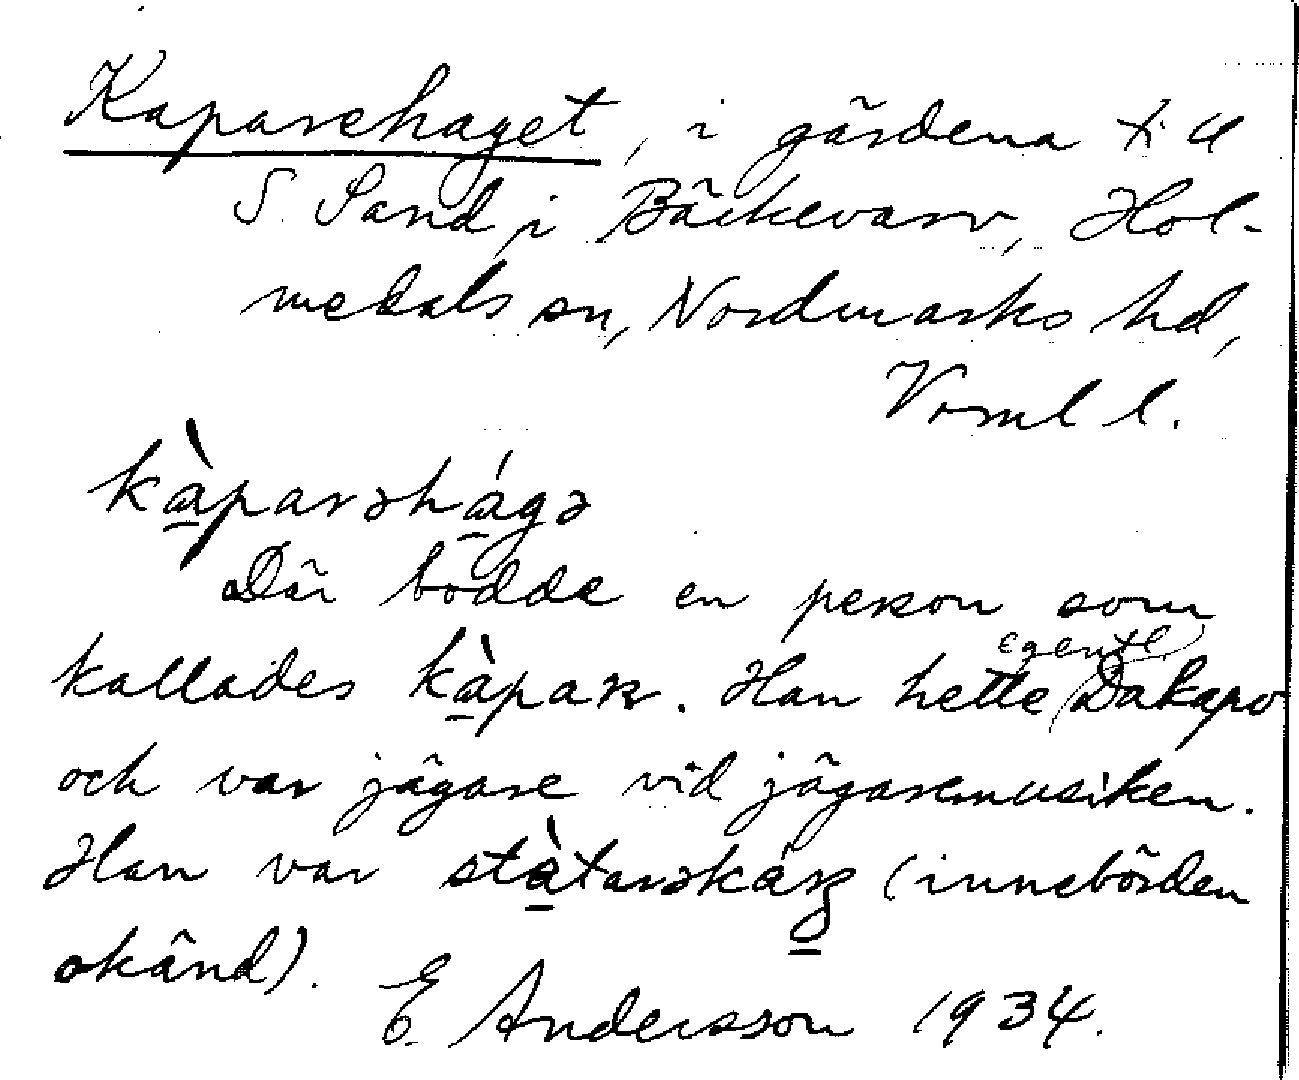 Kaparehaget, i gärdena t. ll
S. Sand i Bäckevarv, Hol-
medals sn, Nordmarks hd,
Verml l.
kàparəhágə
Där bodde en person som
kallades kàpar. Han hette egentl Dakapo
och var jägare vid jägaremusiken.
Han var stàtarəkár (innebörden
okänd).
E. Andersson 1934.